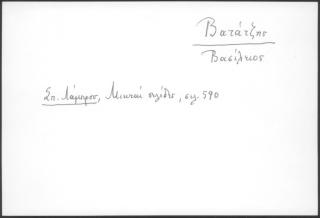 Βατάτζης
Βασίλειος
Σπ. Λάμπρου, Μικταὶ σελίδες, σελ. 590